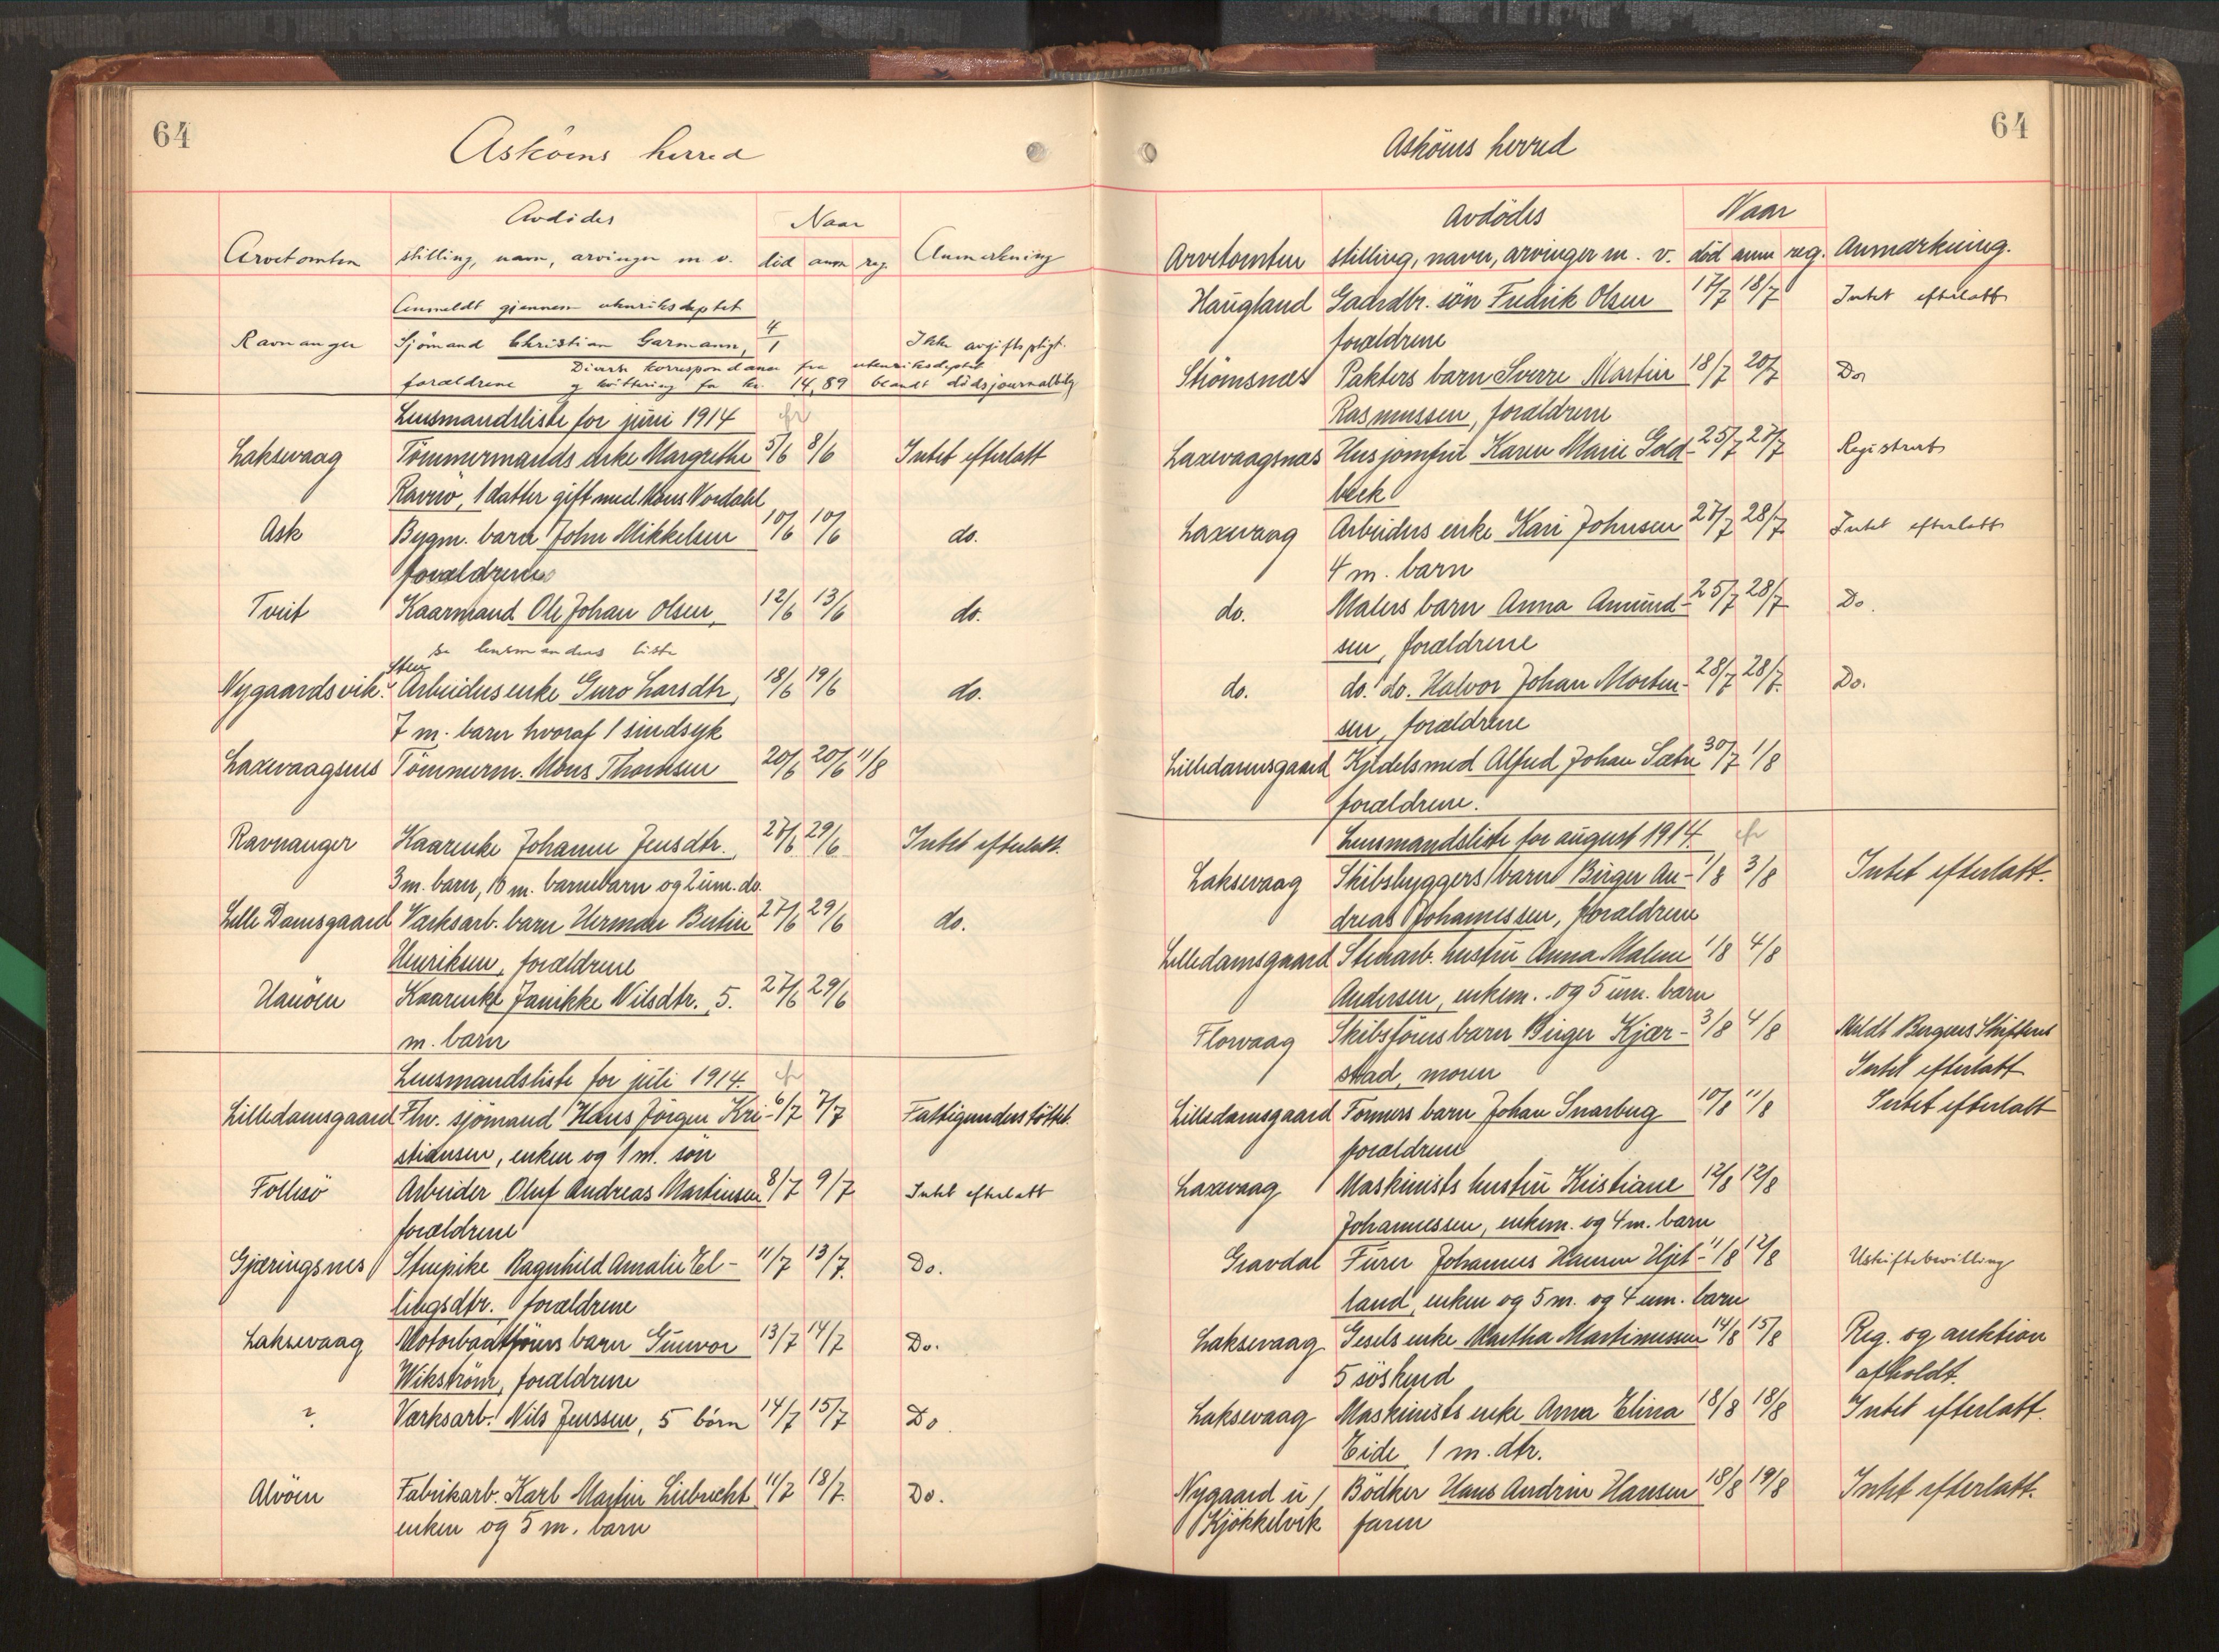 64
Askøens herred
Avdødes
Naar
Arvetomten stilling, navn, arvinger m v. død anm reg. Anmerkning
Anmeldt gjennem utenriksdeptet
Ravnanger Sjömand Christian Garmann, 4/1 Ikke avgiftspligt.
Diverse korrespondance fra utenriksdeptet
forældrene og kvittering for kr. 14,89 blandt dödsjournalbilg
Lensmandsliste for juni 1914
Laksevaag Tömmermands enke Margrethe 5/6 8/6 Intet efterlatt
Ravnö, 1 datter gift med Mons Vordahl
Ask Bygm. barn John Mikkelsen 10/6 10/6 do.
forældrene
Tveit Kaarmand Ole Johan Olsen, 12/6 13/6 do.
se lensmandens liste
Nygaardsvik. Arbeidersenke Guro Larsdtr, 18/6 19/6 do.
7 m. barn hvoraf 1 sindsyk
Laxevaagsnes Tömmerm. Mons Thomsen 20/6 20/6 11/8
Ravnanger Kaarenke Johanne Jensdtr. 27/6 29/6 Intet efterlatt.
3 m. barn, 10 m. barnebarn og 2 um. do.
Lille Damsgaard Værksarb. barn Herman Bertin 27/6 29/6 do.
Henriksen, forældrene
Hanöen Kaarenke Janikke Nilsdtr., 5. 27/6 29/6
m. barn
Lensmandsliste for juli 1914.
Lilledamsgaard Fhv. sjömand Hans Jörgen Kri- 6/7 7/7 Fattigunderstöttet.
stiansen, enken og 1 m. sön
Follesö Arbeider Oluf Andreas Martinsen 8/7 9/7 Intet efterlatt
forældrene
Gjæringsnes Stuepike Ragnhild Amalie El- 11/7 13/7. Do.
lingsdtr. forældrene
Laksevaag Motorbaatförers barn Gunvor 13/7 14/7 Do.
Wikström, forældrene
? Værksarb. Nils Jenssen, 5 börn 14/7 15/7 Do
Alvöen Fabrikarb. Karl Martin Liebrecht 11/7 18/7. Do.
enken og 5 m. barn
64
Askøens herred
Avdödes
Naar
Arvetomten stilling, navn, arvinger m. v. död anm reg. Anmærkning.
Haugland Gaardbr. sön Fredrik Olsen 17/7 18/7 Intet efterlatt
forældrene
Strömsnæs Pakters barn Sverre Martin 18/7 20/7 Do
Rasmussen, forældrene
Laxevaagsnæs Husjomfru Karen Marie Gold- 25/7 27/7 Registrert
beck
Laxevaag Arbeiders enke Kari Johnsen 27/7 28/7 Intet efterlatt
4 m. barn
do. Malers barn Anna Amund- 25/7 28/7 Do.
sen, forældrene
do. do. do. Halvor Johan Morten- 28/7 28/7. Do.
sen, forældrene
Lilledamsgaard Kjedelsmed Alfred Johan Sætre 30/7 1/8
forældrene.
Lensmandsliste for august 1914.
Laksevaag Skibsbyggers barn Birger An- 1/8 3/8 Intet efterlatt.
dreas Johannessen, forældrene
Lilledamsgaard Stenarb. hustru Anna Malene 1/8 4/8
Andersen, enkem. og 5 um. barn
Florvaag Skibsförers barn Birger Kjær- 3/8 4/8 Meldt Bergens Skifteret
stad, moren Intet efterlatt
Lilledamsgaard Formers barn Johan Snarberg 10/8 11/8 Intet efterlatt
forældrene
Laxevaag Maskinists hustru Kristiane 12/8 12/8
Johannessen, enkem. og 4 m. barn
Gravdal Furer Johannes Hansen Hjel- 11/8 12/8 Uskiftebevilling
land, enken og 5 m. og 4 um. barn
Laksevaag Gesels enke Martha Martinussen 14/8 15/8 Reg. og auktion
5 söskend afholdt.
Laksevaag Maskinists enke Anna Elina 18/8 18/8 Intet efterlatt.
Eide, 1 m. dtr.
Nygaard u/ Bödker Hans Andrin Hansen 18/8 19/8 Intet efterlatt.
Kjökkelvik faren